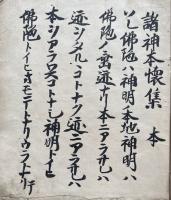 諸神本懐集 本
ソレ佛陀ハ神明ノ本地神明ハ
佛陀ノ垂迹ナリ本ニアラサレハ
迹ヲタルヽコトナク迹ニアラサレハ
本ヲアラハスコトナシ神明トイヒ
佛陀トイヒオモテトナリウラトナリテ